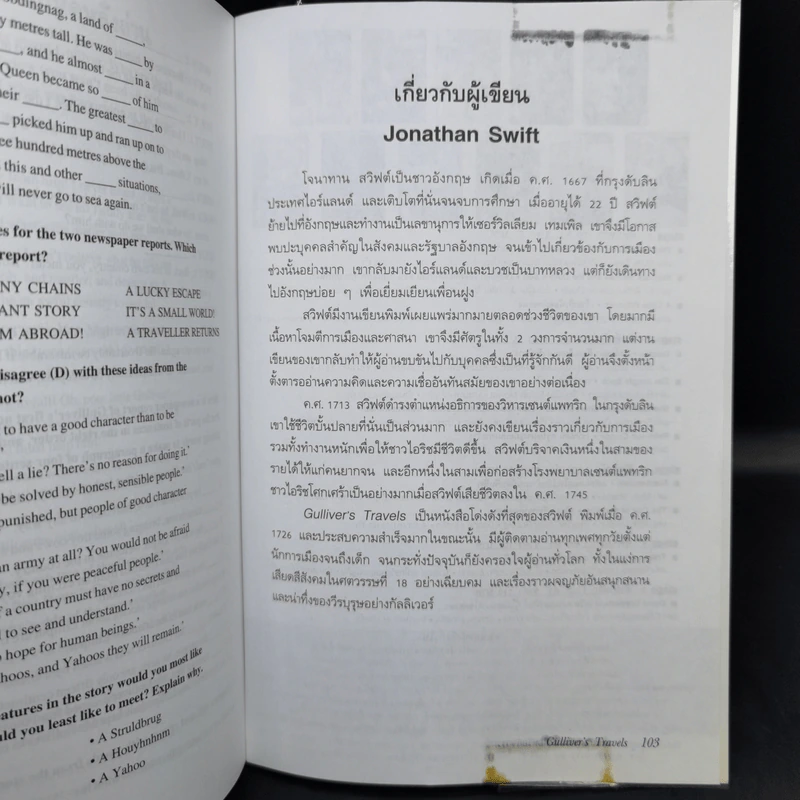 a land of _____,
metres tall. He was _____ by
_____, and he almost _____ in a
Queen became so _____ of him
_____. The greatest _____ to
_____ picked him up and ran up on to
hundred metres above the
this and other _____ situations,
never go to sea again.
for the two newspaper reports. Which
report?
CHAINS A LUCKY ESCAPE
STORY IT'S A SMALL WORLD!
ABROAD! A TRAVELLER RETURNS
(D) with these ideas from the
to have a good character than to be
a lie? There's no reason for doing it.'
be solved by honest, sensible people.'
punished, but people of good character
army at all? You would not be afraid
if you were peaceful people.'
a country must have no secrets and
to see and understand.'
hope for human beings.'
and Yahoos they will remain.'
in the story would you most like
you least like to meet? Explain why.
• A Struldbrug
• A Houyhnhnm
• A Yahoo
เกี่ยวกับผู้เขียน
Jonathan Swift
โจนาทาน สวิฟต์เป็นชาวอังกฤษ เกิดเมื่อ ค.ศ. 1667 ที่กรุงดับลิน
ประเทศไอร์แลนด์ และเติบโตที่นั่นจนจบการศึกษา เมื่ออายุได้ 22 ปี สวิฟต์
ย้ายไปที่อังกฤษและทำงานเป็นเลขานุการให้เซอร์วิลเลียม เทมเพิล เขาจึงมีโอกาส
พบปะบุคคลสำคัญในสังคมและรัฐบาลอังกฤษ จนเข้าไปเกี่ยวข้องกับการเมือง
ช่วงนั้นอย่างมาก เขากลับมายังไอร์แลนด์และบวชเป็นบาทหลวง แต่ก็ยังเดินทาง
ไปอังกฤษบ่อย ๆ เพื่อเยี่ยมเยียนเพื่อนฝูง
สวิฟต์มีงานเขียนพิมพ์เผยแพร่มากมายตลอดช่วงชีวิตของเขา โดยมากมี
เนื้อหาโจมตีการเมืองและศาสนา เขาจึงมีศัตรูในทั้ง 2 วงการจำนวนมาก แต่งาน
เขียนของเขากลับทำให้ผู้อ่านขบขันไปกับบุคคลซึ่งเป็นที่รู้จักกันดี ผู้อ่านจึงตั้งหน้า
ตั้งตารออ่านความคิดและความเชื่ออันทันสมัยของเขาอย่างต่อเนื่อง
ค.ศ. 1713 สวิฟต์ดำรงตำแหน่งอธิการของวิหารเซนต์แพทริก ในกรุงดับลิน
เขาใช้ชีวิตบั้นปลายที่นั่นเป็นส่วนมาก และยังคงเขียนเรื่องราวเกี่ยวกับการเมือง
รวมทั้งทำงานหนักเพื่อให้ชาวไอริชมีชีวิตดีขึ้น สวิฟต์บริจาคเงินหนึ่งในสามของ
รายได้ให้แก่คนยากจน และอีกหนึ่งในสามเพื่อก่อสร้างโรงพยาบาลเซนต์แพทริก
ชาวไอริชโศกเศร้าเป็นอย่างมากเมื่อสวิฟต์เสียชีวิตลงใน ค.ศ. 1745
Gulliver's Travels เป็นหนังสือโด่งดังที่สุดของสวิฟต์ พิมพ์เมื่อ ค.ศ.
1726 และประสบความสำเร็จมากในขณะนั้น มีผู้ติดตามอ่านทุกเพศทุกวัยตั้งแต่
นักการเมืองจนถึงเด็ก จนกระทั่งปัจจุบันก็ยังครองใจผู้อ่านทั่วโลก ทั้งในแง่การ
เสียดสีสังคมในศตวรรษที่ 18 อย่างเฉียบคม และเรื่องราวผจญภัยอันสนุกสนาน
และน่าทึ่งของวีรบุรุษอย่างกัลลิเวอร์
Gulliver's Travels 103